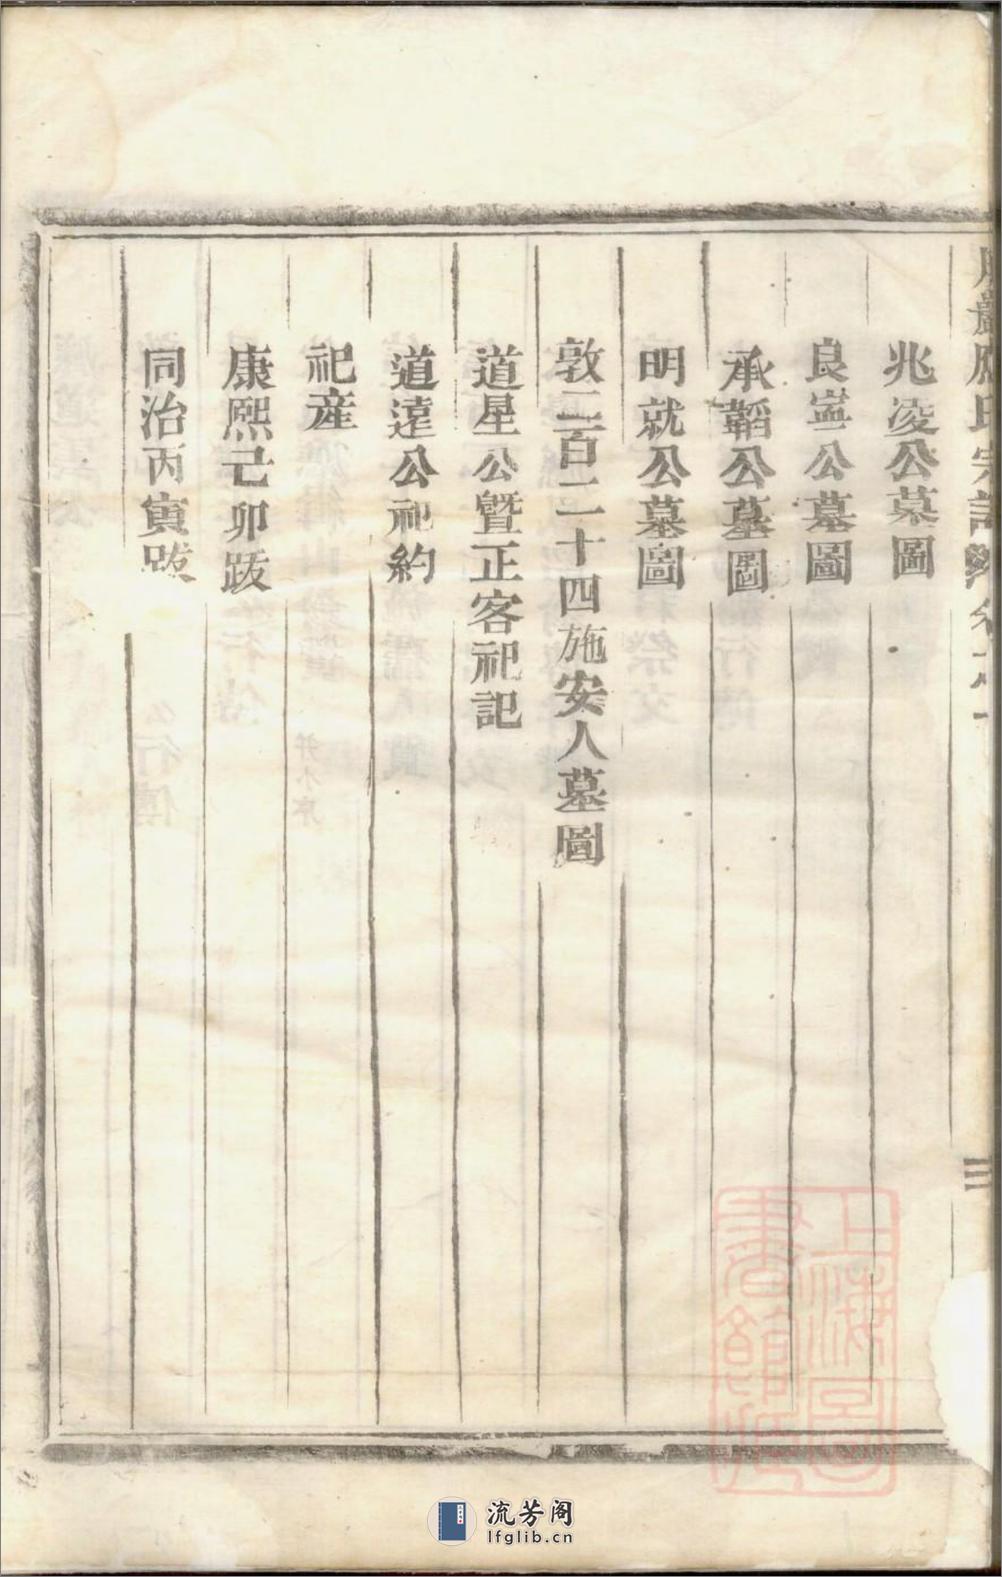 應氏宗譜
三
兆凌公墓圖
良寧公墓圖
承韜公墓圖
明就公墓圖
敦二百二十四施安人墓圖
道星公暨正客祀記
道遠公祀約
祀產
康熙己卯跋
同治丙寅跋
上海圖書館所藏
流芳阁
lfglib.cn